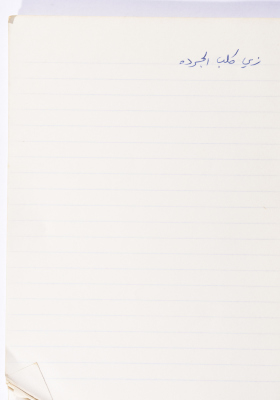 زي كلب الجرده